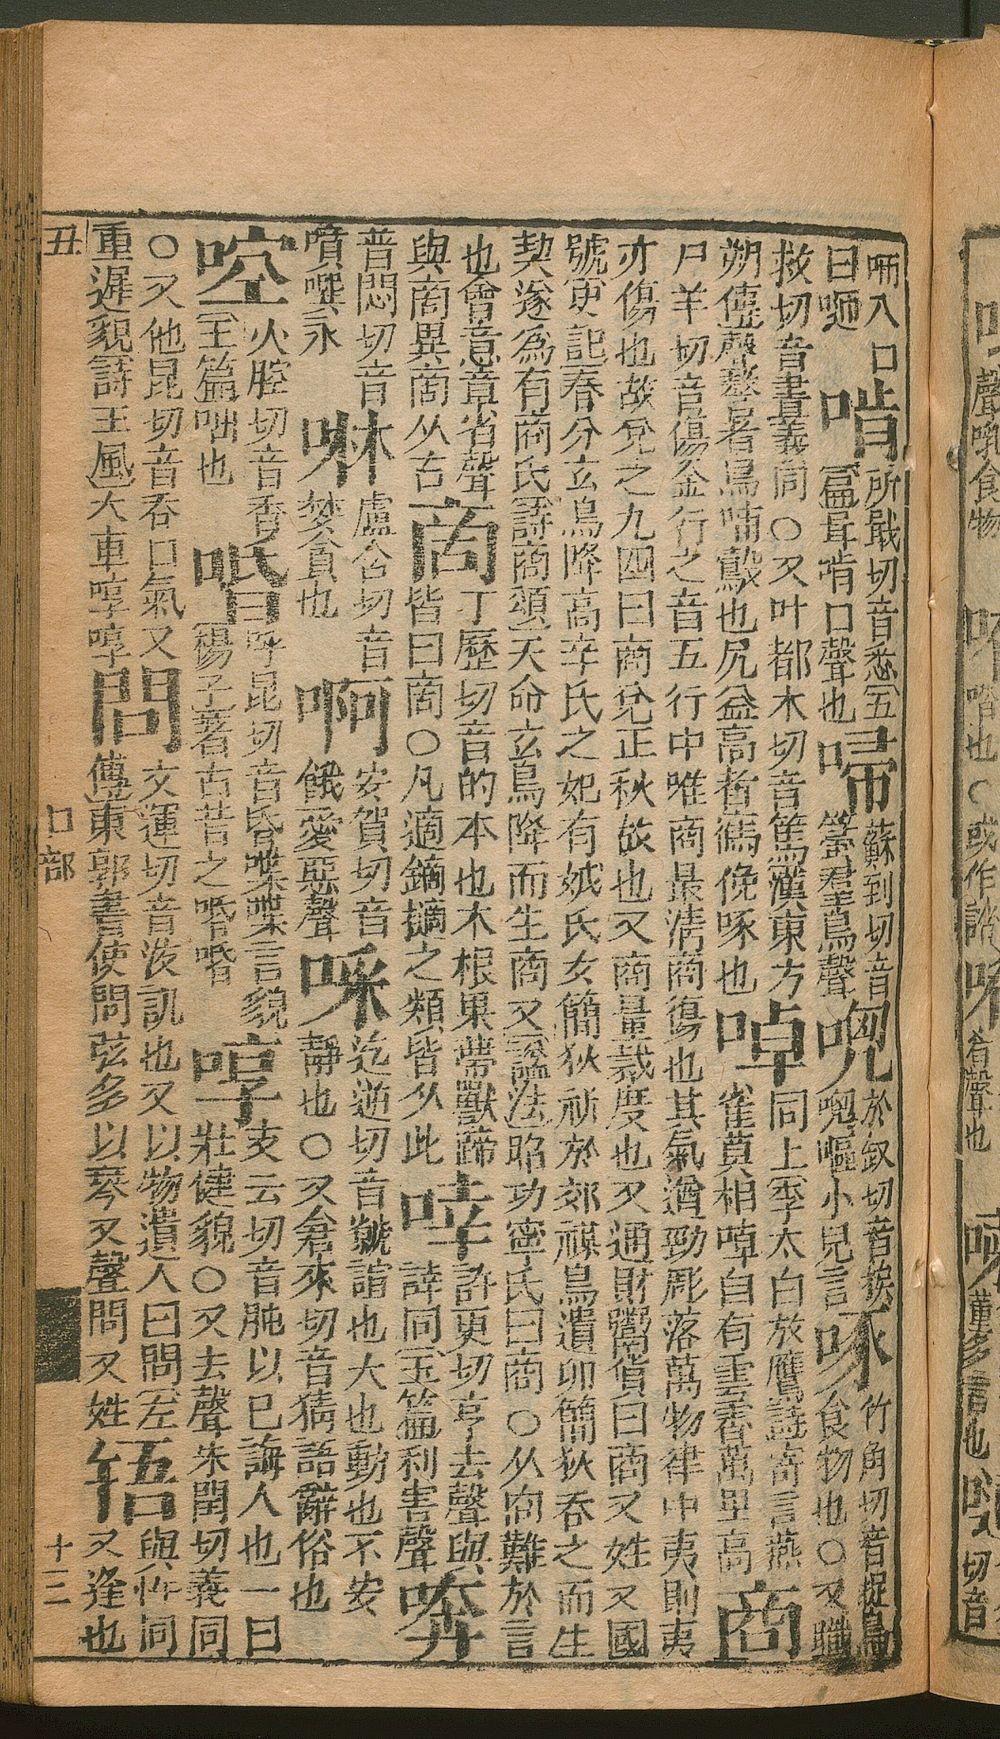 唡入口曰唖啃所戢切音澀五篇咠啃口聲也㖕蘇到切音譟群鳥聲唲於切音唲嘔小兒言啄竹角切音捉鳥食物也○又職
救切音晝義同○又叶都木切音篤漢東方朔傳聲謷謷者鳥哺鷇也尻益高者鶴俛啄也啅同上李太白放鷹詩寄言燕雀莫相啅自有雲霄萬里高商
尸羊切音傷金行之音五行中唯商最清商傷也其氣遒勁彫落萬物律中夷則夷亦傷也故兌之九四曰商兌正秋故也又商量裁度也又通財鬻貨曰商又姓又國
號史記春分玄鳥降高辛氏之妃有娀氏女簡狄祈於郊禖鳥遺卵簡狄吞之而生契遂為有商氏詩商頌天命玄鳥降而生商又謚法昭功寧民曰商○从㕯難於言
也會意章省聲與啇異啇从古啇丁歷切音的本也木根果蔕獸蹄皆曰啇○凡適鏑擿之類皆从此啈許更切亨去聲與諄同玉篇利害聲㖹
普悶切音噴噀水啉盧含切音婪貪也啊安賀切音餓愛惡聲啋迄逆切音虩諳也大也動也不安靜也○又倉來切音猜語辭俗也
啌火腔切音香玉篇咄也㖧呼昆切音昏喋喋言貌揚子著古昔之㖧㖧啍支云切音肫以已誨人也一曰壯健貌○又去聲朱閏切義同
○又他昆切音吞口氣又重遲貌詩王風大車啍啍問文運切音汶訊也又以物遺人曰問左傳東郭書使問弦多以琴又聲問又姓啎與忤同又逢也
丑
口部
十三